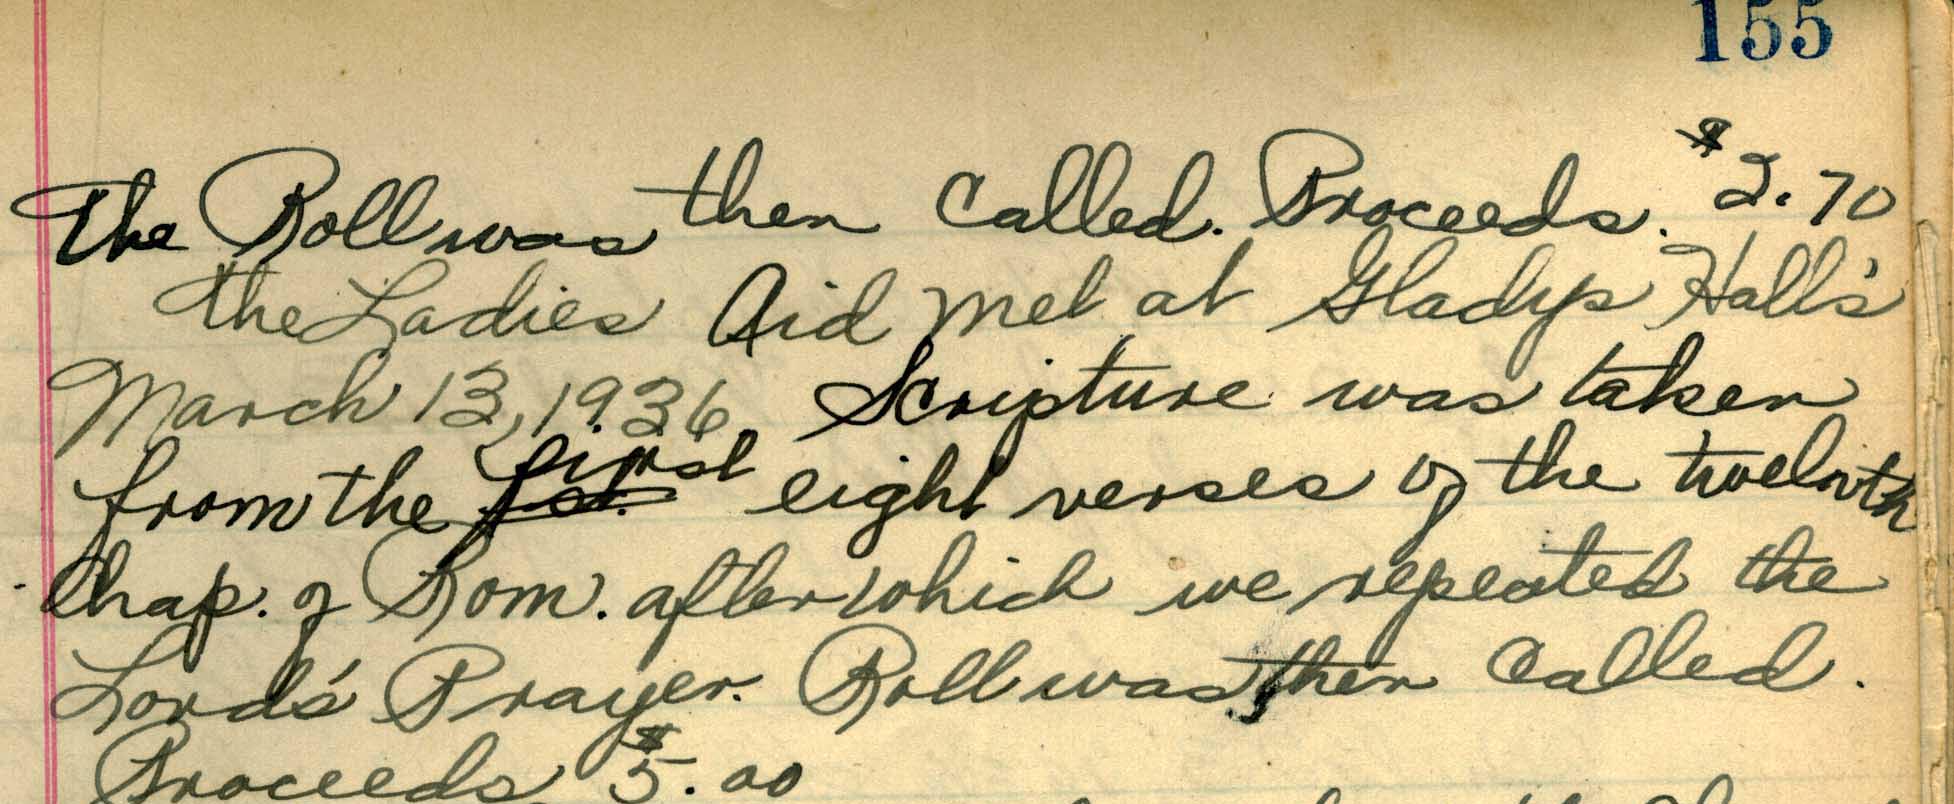 155
The Roll was then called. Proceeds. $2.70
The Ladies Aid met at Gladys Hall's
March 13, 1936. Scripture was taken
from the first eight verses of the twelvth
Chap. of Rom. after which we repeated the
Lord's Prayer. Roll was then called.
Proceeds $5.00